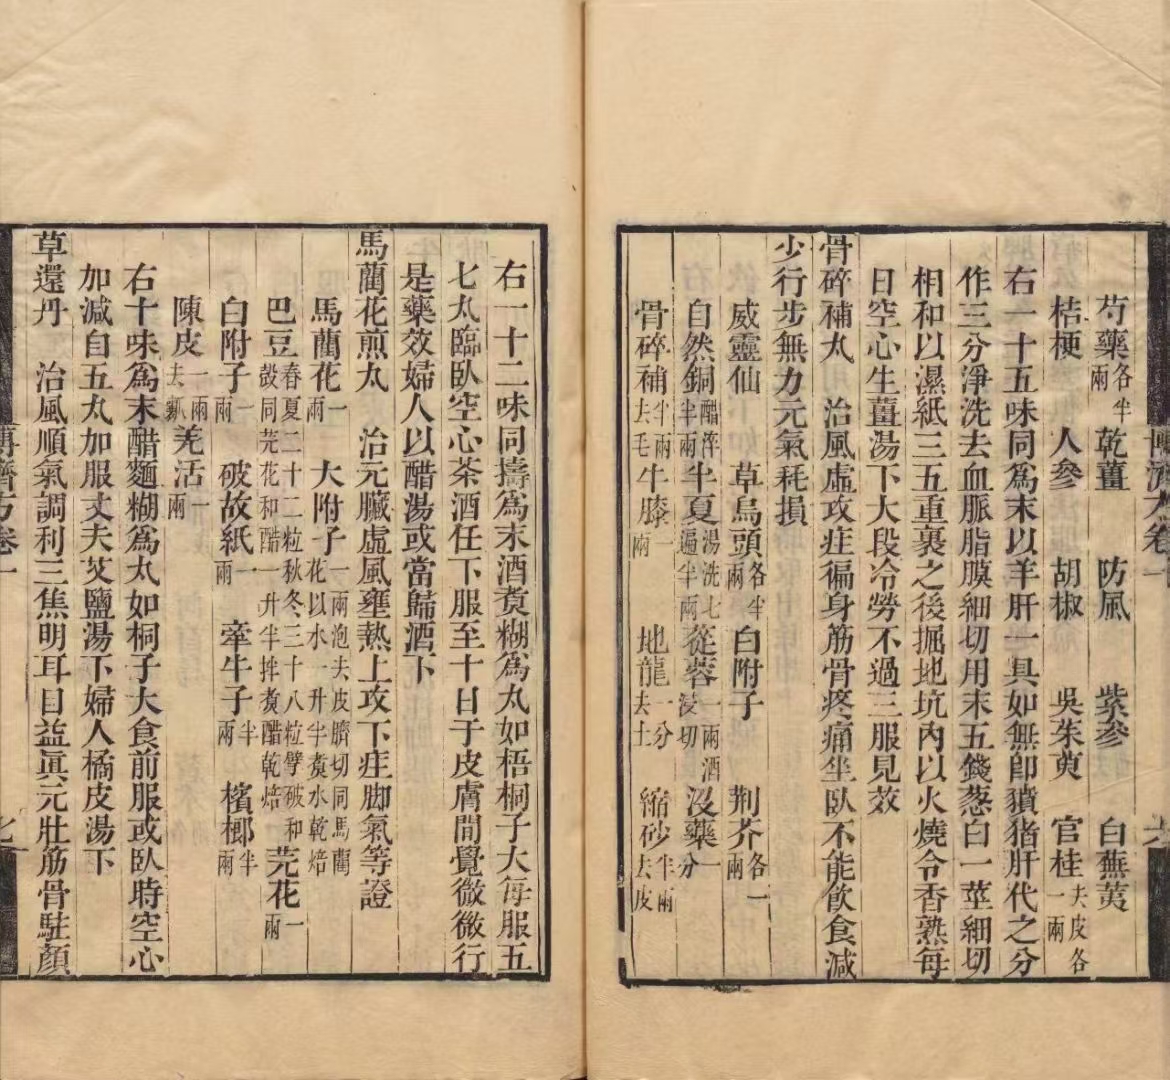 芍藥各半兩 乾薑 防風 紫參 白蕪荑
桔梗 人參 胡椒 吳茱萸 官桂去皮各一兩
右一十五味同爲末以羊肝一具如無卽獖猪肝代之分
作三分淨洗去血脈脂膜細切用末五錢葱白一莖細切
相和以濕紙三五重裹之後掘地坑內以火燒令香熟每
日空心生薑湯下大段冷勞不過三服見效
骨碎補丸 治風虛攻疰徧身筋骨疼痛坐臥不能飲食減
少行步無力元氣耗損
威靈仙 草烏頭各半兩 白附子 荆芥各一兩
自然銅醋淬半兩 半夏湯洗七遍半兩 蓯蓉一兩酒浸切 沒藥一分
骨碎補半兩去毛 牛膝一兩 地龍一分去土 縮砂半兩去皮
博濟方卷一 六
右一十二味同擣爲末酒煑糊爲丸如梧桐子大每服五
七丸臨臥空心茶酒任下服至十日于皮膚間覺微微行
是藥效婦人以醋湯或當歸酒下
馬藺花煎丸 治元臟虛風壅熱上攻下疰脚氣等證
馬藺花一兩 大附子一兩泡去皮臍切同馬藺花以水一升半煑水乾焙
巴豆春夏二十二粒秋冬三十八粒劈破和鼓同芫花和醋一升半拌煑醋乾焙 芫花一兩
白附子一兩 破故紙一兩 牽牛子半兩 檳榔半兩
陳皮一兩去瓤 羌活一兩
右十味爲末醋麵糊爲丸如桐子大食前服或臥時空心
加減自五丸加服丈夫炆鹽湯下婦人橘皮湯下
草還丹 治風順氣調利三焦明耳目益眞元壯筋骨駐顏
博濟方卷一 七